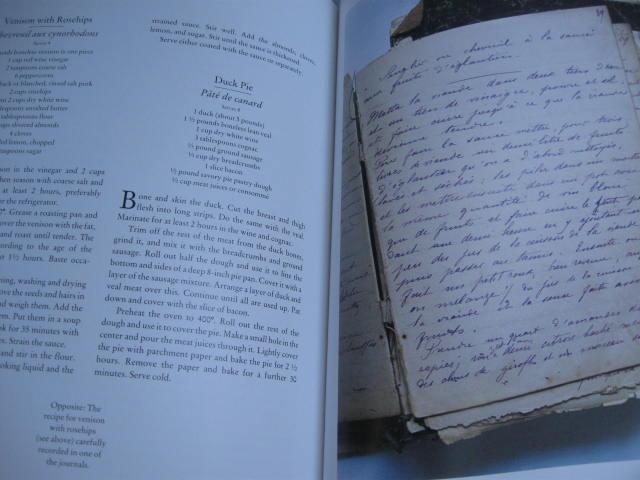 Venison with Rosehips
Chevreuil aux cynorhodons
Serves 4
pounds boneless venison in one piece
1 cup red wine vinegar
2 teaspoons coarse salt
6 peppercorns
back or blanched, rinsed salt pork
2 cups rosehips
2 cups dry white wine
tablespoons unsalted butter
tablespoons flour
cups slivered almonds
4 cloves
lemon, chopped
teaspoons sugar
in the vinegar and 2 cups
then season with coarse salt and
at least 2 hours, preferably
the refrigerator.
Grease a roasting pan and
cover the venison with the fat,
and roast until tender. The
according to the age of the
to 1½ hours. Baste occa-
washing and drying
remove the seeds and hairs in
and weigh them. Add the
Put them in a soup
cook for 35 minutes with
Strain the sauce.
and stir in the flour.
cooking liquid and the
Opposite: The
recipe for venison
with rosehips
(see above) carefully
recorded in one of
the journals.
strained sauce. Stir well. Add the almonds, cloves,
lemon, and sugar. Stir until the sauce is thickened.
Serve either coated with the sauce or separately.
Duck Pie
Pâté de canard
Serves 8
1 duck (about 3 pounds)
1 ½ pounds boneless lean veal
1 cup dry white wine
3 tablespoons cognac
½ pound ground sausage
cup dry breadcrumbs
1 slice bacon
½ pound savory pie pastry dough
½ cup meat juices or consommé
Bone and skin the duck. Cut the breast and thigh
flesh into long strips. Do the same with the veal.
Marinate for at least 2 hours in the wine and cognac.
Trim off the rest of the meat from the duck bones,
grind it, and mix it with the breadcrumbs and ground
sausage. Roll out half the dough and use it to line the
bottom and sides of a deep 8-inch pie pan. Cover it with a
layer of the sausage mixture. Arrange a layer of duck and
veal meat over this. Continue until all are used up. Pat
down and cover with the slice of bacon.
Preheat the oven to 400°. Roll out the rest of the
dough and use it to cover the pie. Make a small hole in the
center and pour the meat juices through it. Lightly cover
the pie with parchment paper and bake the pie for 2 ½
hours. Remove the paper and bake for a further 30
minutes. Serve cold.
Sanglier ou chevreuil à la sauce
aux fruits d'églantier.
Mettre la viande dans deux tiers d'eau
et un tiers de vinaigre, poivre et sel
et faire cuire jusqu'à ce que la viande
devienne tendre.
Puis pour la sauce mettre, pour trois
livres de viande un demi litre de fruits
d'églantier qu'on a d'abord nettoyés,
lavés et séchés: les
et les mettre ensuite dans un pot avec
la même quantité de vin blanc
que de fruits et faire cuire le tout
une demi heure en y ajoutant un
peu des jus de la cuisson de la viande
puis passer au tamis. Ensuite on
fait un petit roux,
on mélange du jus de la cuisson de
la viande et la sauce faite avec les
fruits.
un quart d'amandes
citron haché
des clous de girofle et un morceau de